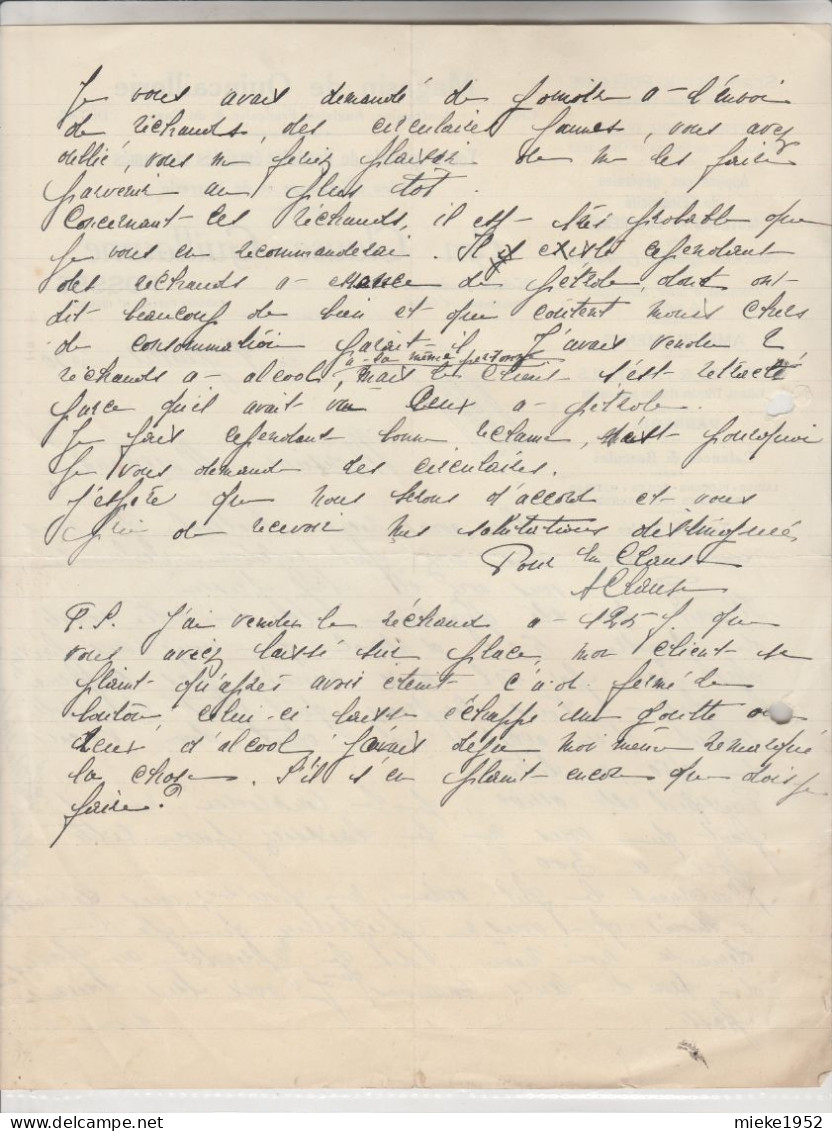 Je vous avais demandé de joindre à l'envoi
de réchauds, des circulaires jaunes, vous avez
oublié, vous me feriez plaisir de me les faire
parvenir au plus tôt.
Concernant les réchauds, il est très probable que
je vous en recommanderai. Il existe cependant
des réchauds à essence de pétrole, dont on
dit beaucoup de bien et qui coûtent moins chers
de consommation parait-il. J'avais vendu 2
réchauds à alcool, à la même personne mais le client s'est rétracté
parce qu'il avait vu ceux à pétrole.
Je fais cependant bonne réclame, c'est pourquoi
je vous demande des circulaires.
J'espère que nous serons d'accord et vous
prie de recevoir mes salutations distinguées
Pour Clause
A Clause
P.S. J'ai vendu le réchaud à 125 f. que
vous aviez laissé sur place, mon client se
plaint qu'après avoir éteint c.à.d. fermé le
bouton, celui-ci laisse échappé une goutte ou
deux d'alcool, j'avais déjà moi même remarqué
la chose. S'il s'en plaint encore que dois je
faire?
mieke1952